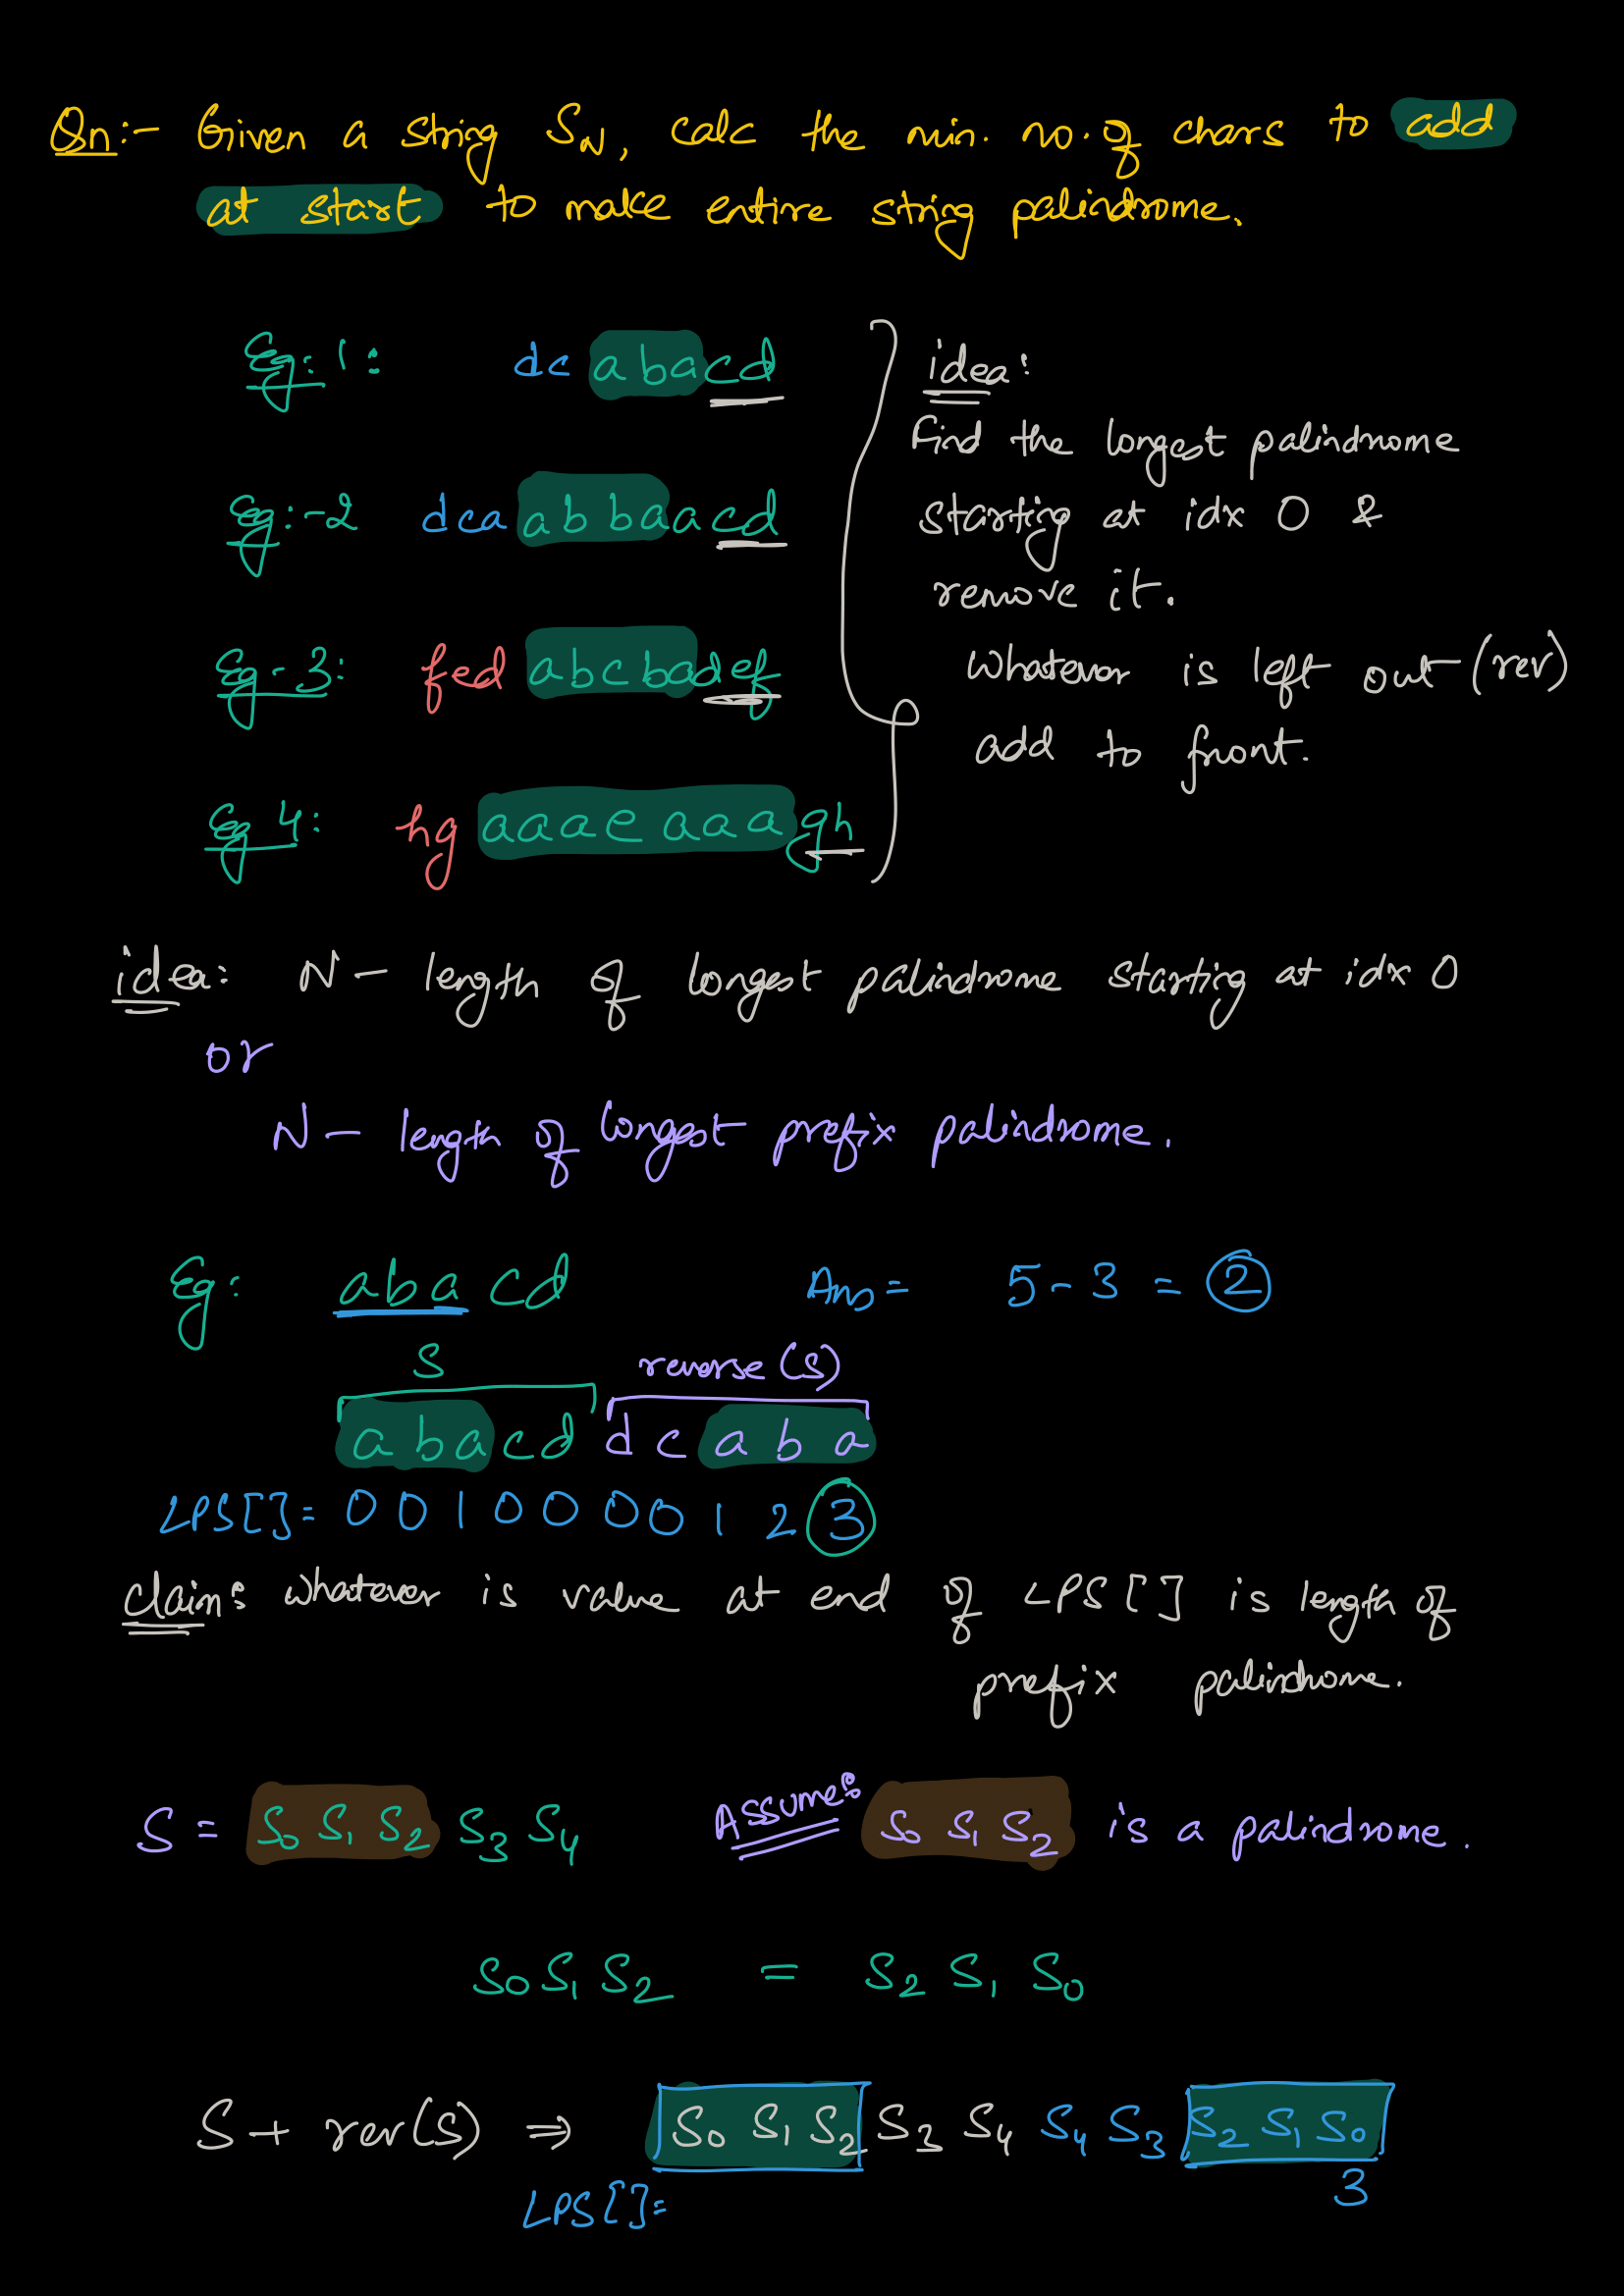 Qn:- Given a string S_N, calc the min. no. of chars to add
at start to make entire string palindrome.
Eg: 1: dc abacd
Eg:-2 dca abbaacd
Eg-3: fed abcbadef
Eg 4: hg aaaeaaagh
idea:
find the longest palindrome
starting at idx 0 &
remove it.
Whatever is left out (rev)
add to front.
idea: N - length of longest palindrome starting at idx 0
or
N - length of longest prefix palindrome.
Eg: abacd Ans = 5 - 3 = 2
S reverse (S)
a b a c d d c a b a
LPS[] = 0 0 1 0 0 0 0 1 2 3
claim: whatever is value at end of LPS[] is length of
prefix palindrome.
S = S0 S1 S2 S3 S4 Assume: S0 S1 S2 is a palindrome.
S0 S1 S2 = S2 S1 S0
S + rev(S) ⇒ S0 S1 S2 S3 S4 S4 S3 S2 S1 S0
LPS[] = 3